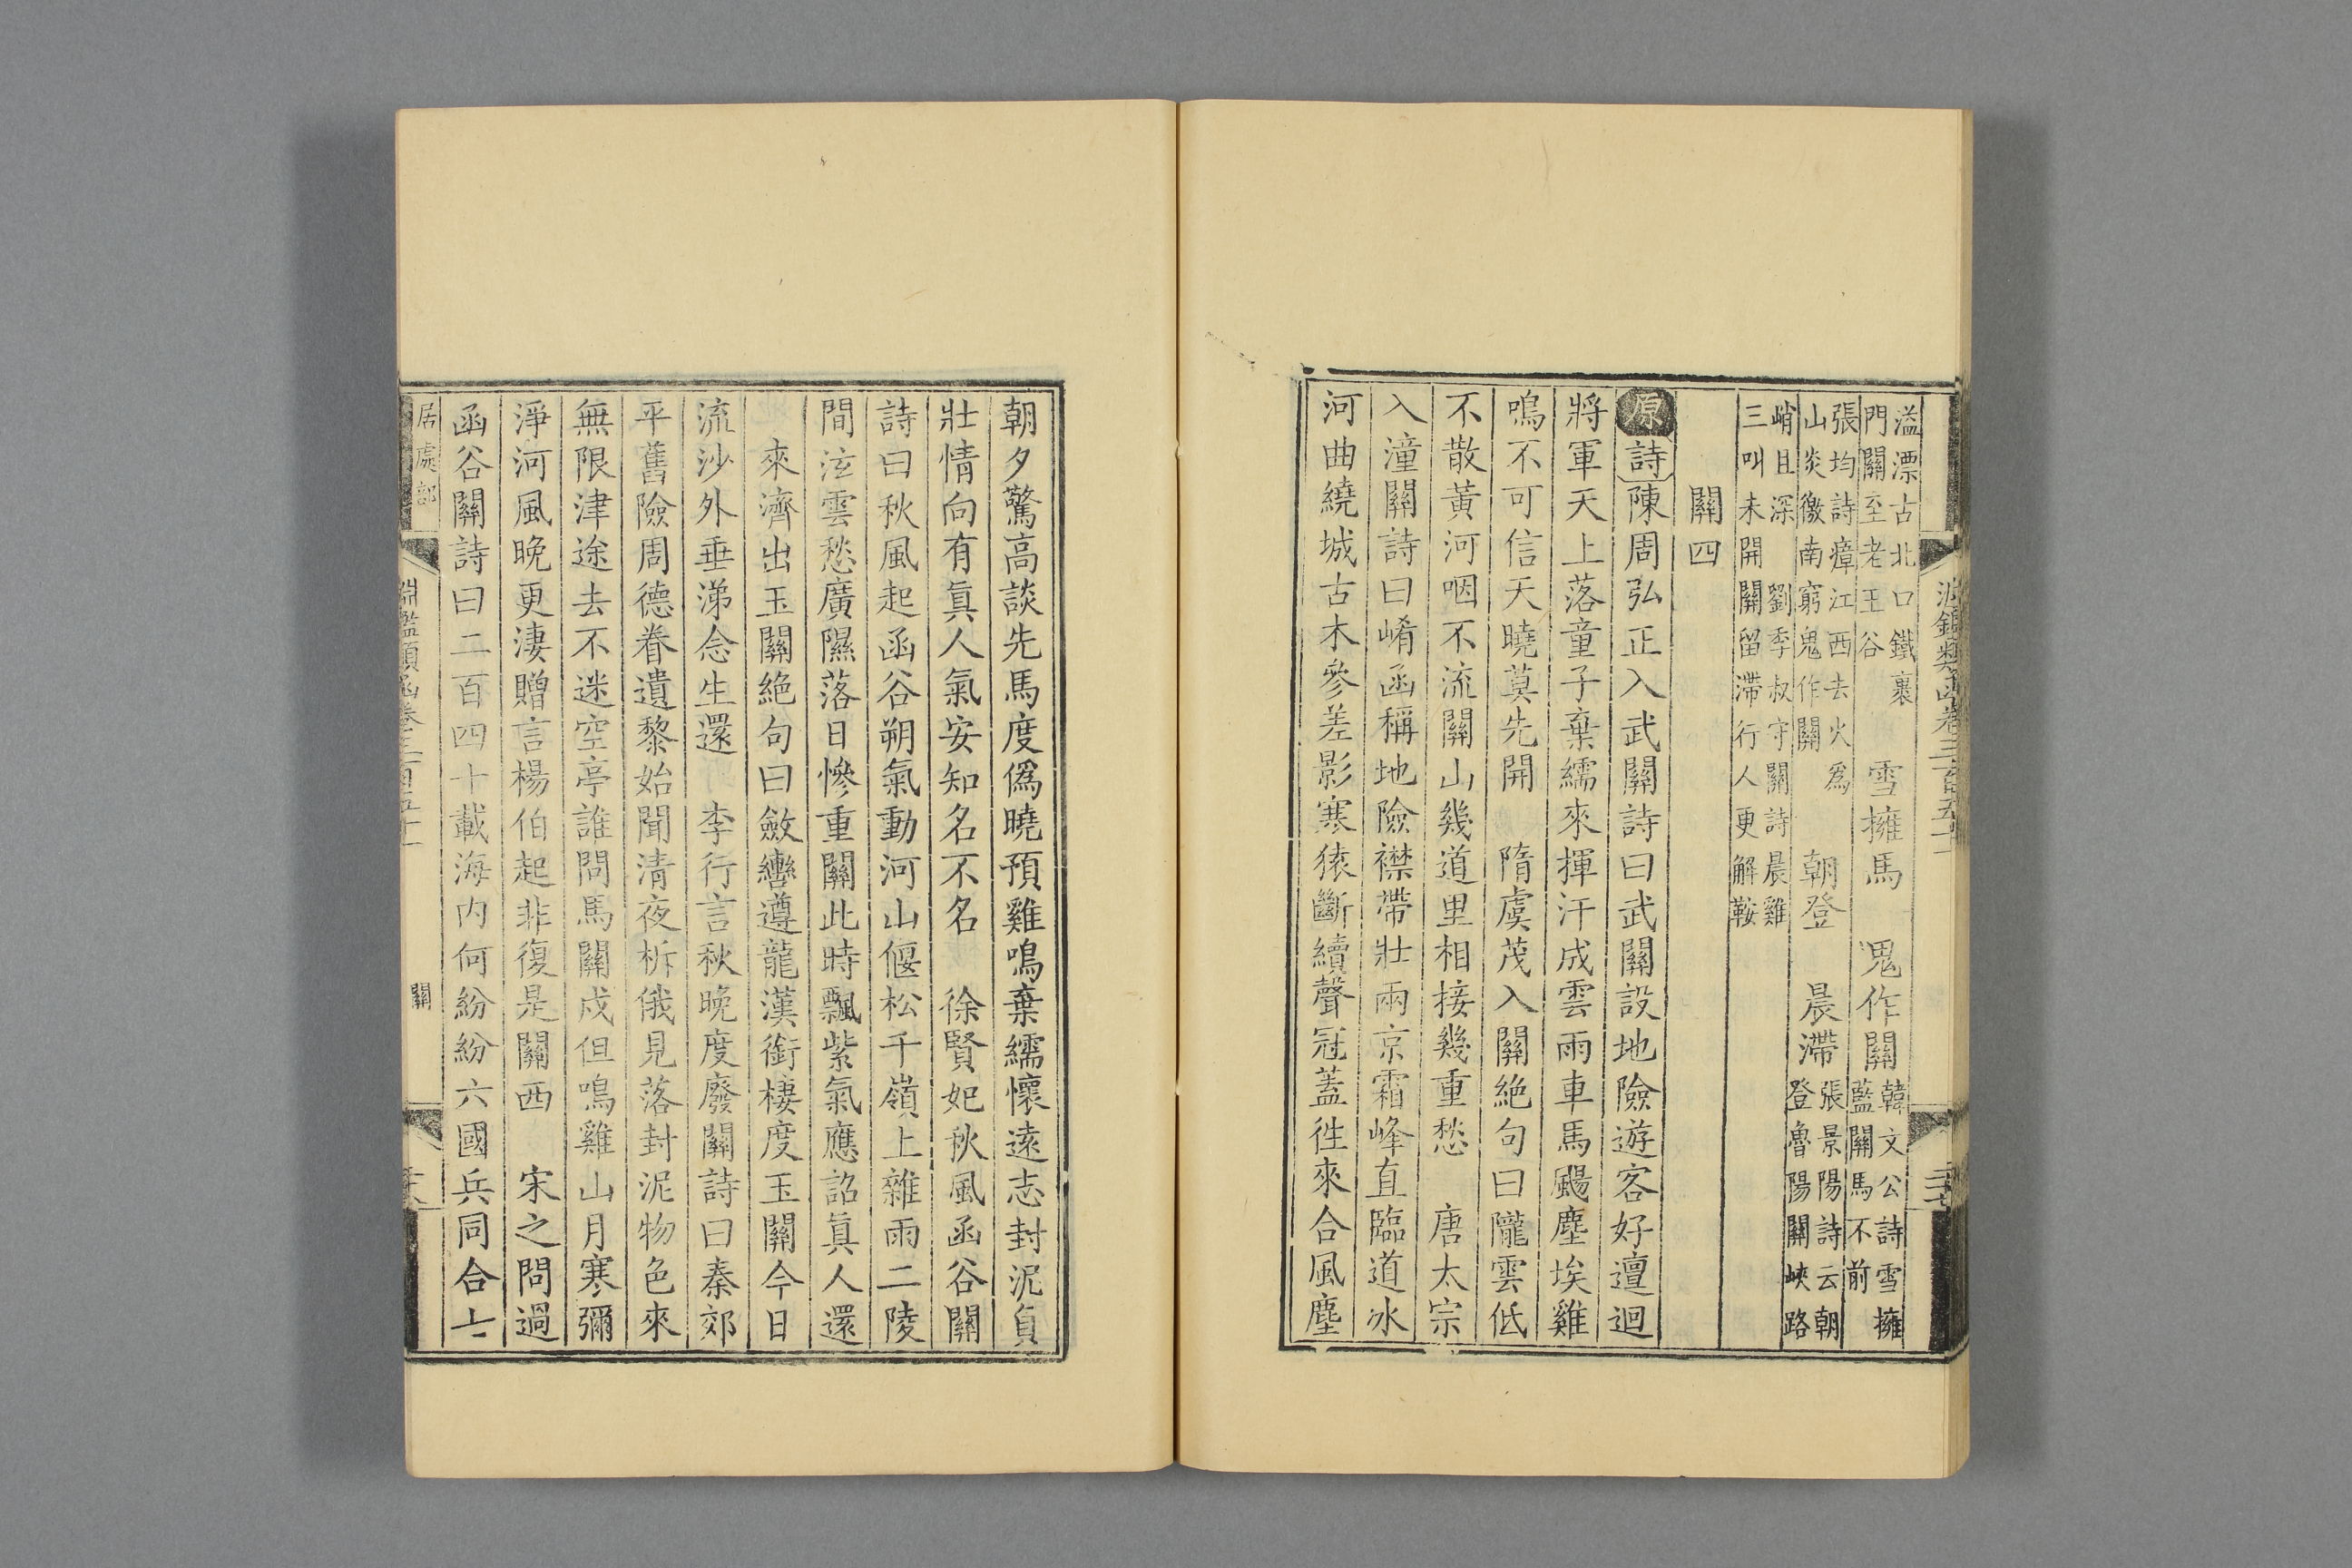 溢漂古北口鐵裹
門關至老王谷
雪擁馬　鬼作關
韓文公詩雪擁
藍關馬不前
張均詩瘴江西去火爲
山炎徼南窮鬼作關
朝登　晨滯
張景陽詩云朝
登魯陽關峽路
峭且深　劉季叔守關詩晨雞
三叫未開關留滯行人更解鞍
關四
原詩陳周弘正入武關詩曰武關設地險遊客好邅迴
將軍天上落童子棄繻來揮汗成雲雨車馬颺塵埃雞
鳴不可信天曉莫先開　隋虞茂入關絶句曰隴雲低
不散黃河咽不流關山幾道里相接幾重愁　唐太宗
入潼關詩曰崤函稱地險襟帶壯兩京霜峰直臨道冰
河曲繞城古木參差影寒猿斷續聲冠蓋徃來合風塵
朝夕驚高談先馬度僞曉預雞鳴棄繻懷遠志封泥負
壯情向有眞人氣安知名不名　徐賢妃秋風函谷關
詩曰秋風起函谷朔氣動河山偃松千嶺上雜雨二陵
間泫雲愁廣隰落日慘重關此時飄紫氣應詔眞人還
來濟出玉關絶句曰斂轡遵龍漢銜棲度玉關今日
流沙外垂涕念生還　李行言秋晚度廢關詩曰秦郊
平舊險周德眷遺黎始聞清夜柝俄見落封泥物色來
無限津途去不迷空亭誰問馬關戍但鳴雞山月寒彌
淨河風晚更淒贈言楊伯起非復是關西　宋之問過
函谷關詩曰二百四十載海內何紛紛六國兵同合七
居處部
淵鑑類函卷三百五十一
關